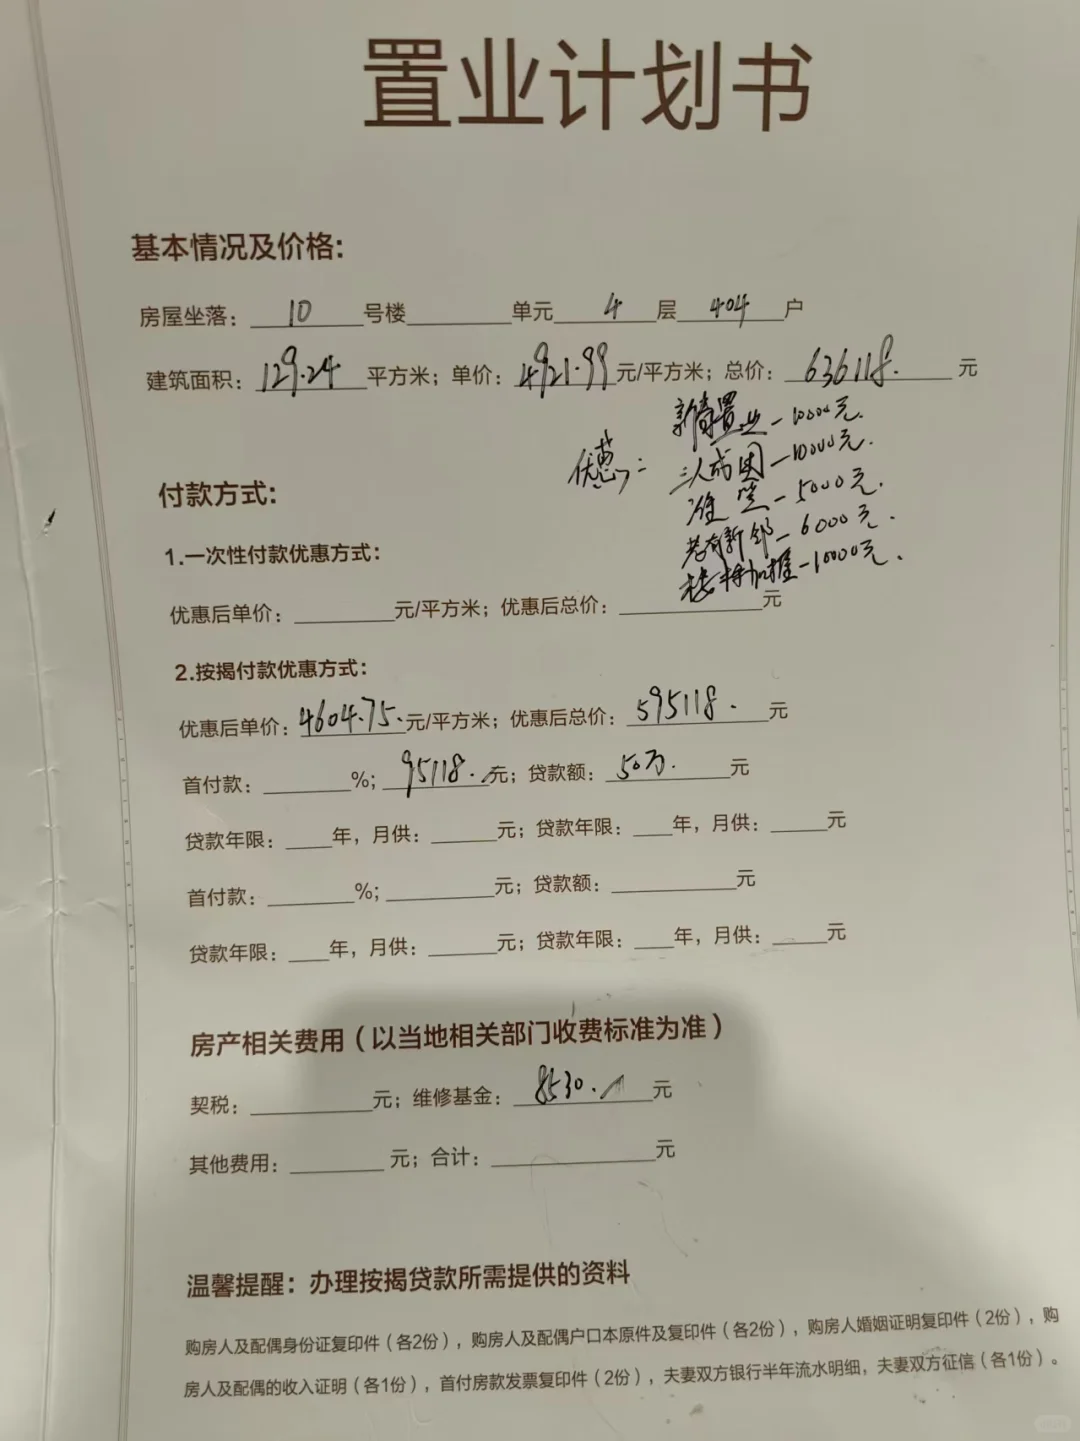 置业计划书
基本情况及价格:
房屋坐落: 10 号楼 单元 4 层 404 户
建筑面积: 129.24 平方米; 单价: 4921.99 元/平方米; 总价: 636118. 元
优惠: 新青置业-10000元.
三人成团-10000元.
准签-5000元.
老有新邻-6000元.
楼栋加推-10000元.
付款方式:
1.一次性付款优惠方式:
优惠后单价: 元/平方米; 优惠后总价: 元
2.按揭付款优惠方式:
优惠后单价: 4604.75. 元/平方米; 优惠后总价: 595118. 元
首付款: %; 95118. 元; 贷款额: 50万. 元
贷款年限: 年, 月供: 元; 贷款年限: 年, 月供: 元
首付款: %; 元; 贷款额: 元
贷款年限: 年, 月供: 元; 贷款年限: 年, 月供: 元
房产相关费用（以当地相关部门收费标准为准）
契税: 元; 维修基金: 8530. 元
其他费用: 元; 合计: 元
温馨提醒: 办理按揭贷款所需提供的资料
购房人及配偶身份证复印件（各2份）, 购房人及配偶户口本原件及复印件（各2份）, 购房人婚姻证明复印件（2份）, 购
房人及配偶的收入证明（各1份）, 首付房款发票复印件（2份）, 夫妻双方银行半年流水明细, 夫妻双方征信（各1份）。